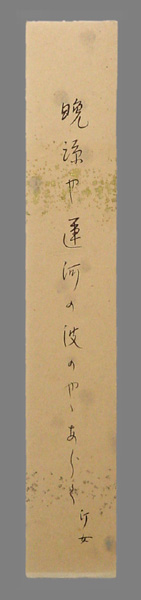 晩涼や運河の波のややあらく
汀女